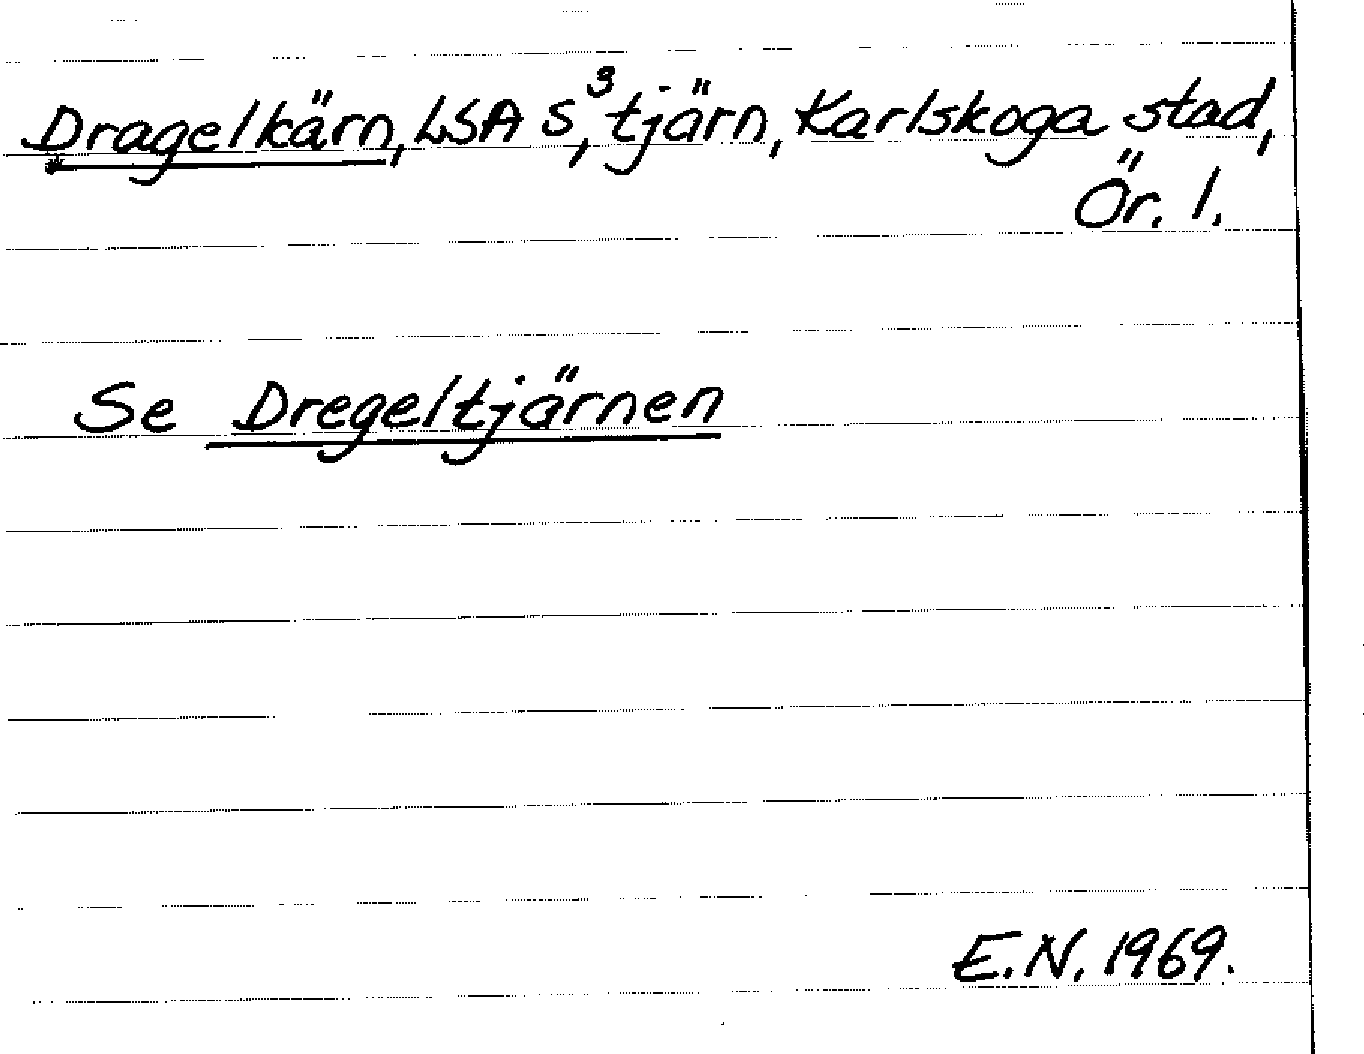 Dragelkärn, LSA S³, tjärn, Karlskoga stad,
Ör. l.
Se Dregeltjärnen
E.N. 1969.